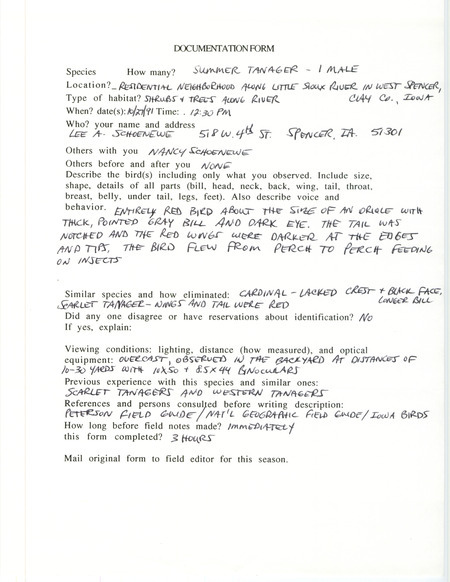 DOCUMENTATION FORM
Species How many? SUMMER TANAGER - 1 MALE
Location? RESIDENTIAL NEIGHBORHOOD ALONG LITTLE SIOUX RIVER IN WEST SPENCER,
Type of habitat? SHRUBS & TREES ALONG RIVER CLAY CO., IOWA
When? date(s): 10/27/91 Time: . 12:30 PM
Who? your name and address
LEE A. SCHOENEWE 518 W. 4th ST. SPENCER, IA. 51301
Others with you NANCY SCHOENEWE
Others before and after you NONE
Describe the bird(s) including only what you observed. Include size,
shape, details of all parts (bill, head, neck, back, wing, tail, throat,
breast, belly, under tail, legs, feet). Also describe voice and
behavior. ENTIRELY RED BIRD ABOUT THE SIZE OF AN ORIOLE WITH
THICK, POINTED GRAY BILL AND DARK EYE. THE TAIL WAS
NOTCHED AND THE RED WINGS WERE DARKER AT THE EDGES
AND TIPS. THE BIRD FLEW FROM PERCH TO PERCH FEEDING
ON INSECTS
Similar species and how eliminated: CARDINAL - LACKED CREST & BLACK FACE,
LONGER BILL
SCARLET TANAGER - WINGS AND TAIL WERE RED
Did any one disagree or have reservations about identification? NO
If yes, explain:
Viewing conditions: lighting, distance (how measured), and optical
equipment: OVERCAST, OBSERVED IN THE BACKYARD AT DISTANCES OF
10-30 YARDS WITH 10X50 & 8.5X44 BINOCULARS
Previous experience with this species and similar ones:
SCARLET TANAGERS AND WESTERN TANAGERS
References and persons consulted before writing description:
PETERSON FIELD GUIDE/NAT'L GEOGRAPHIC FIELD GUIDE/IOWA BIRDS
How long before field notes made? IMMEDIATELY
this form completed? 3 HOURS
Mail original form to field editor for this season.